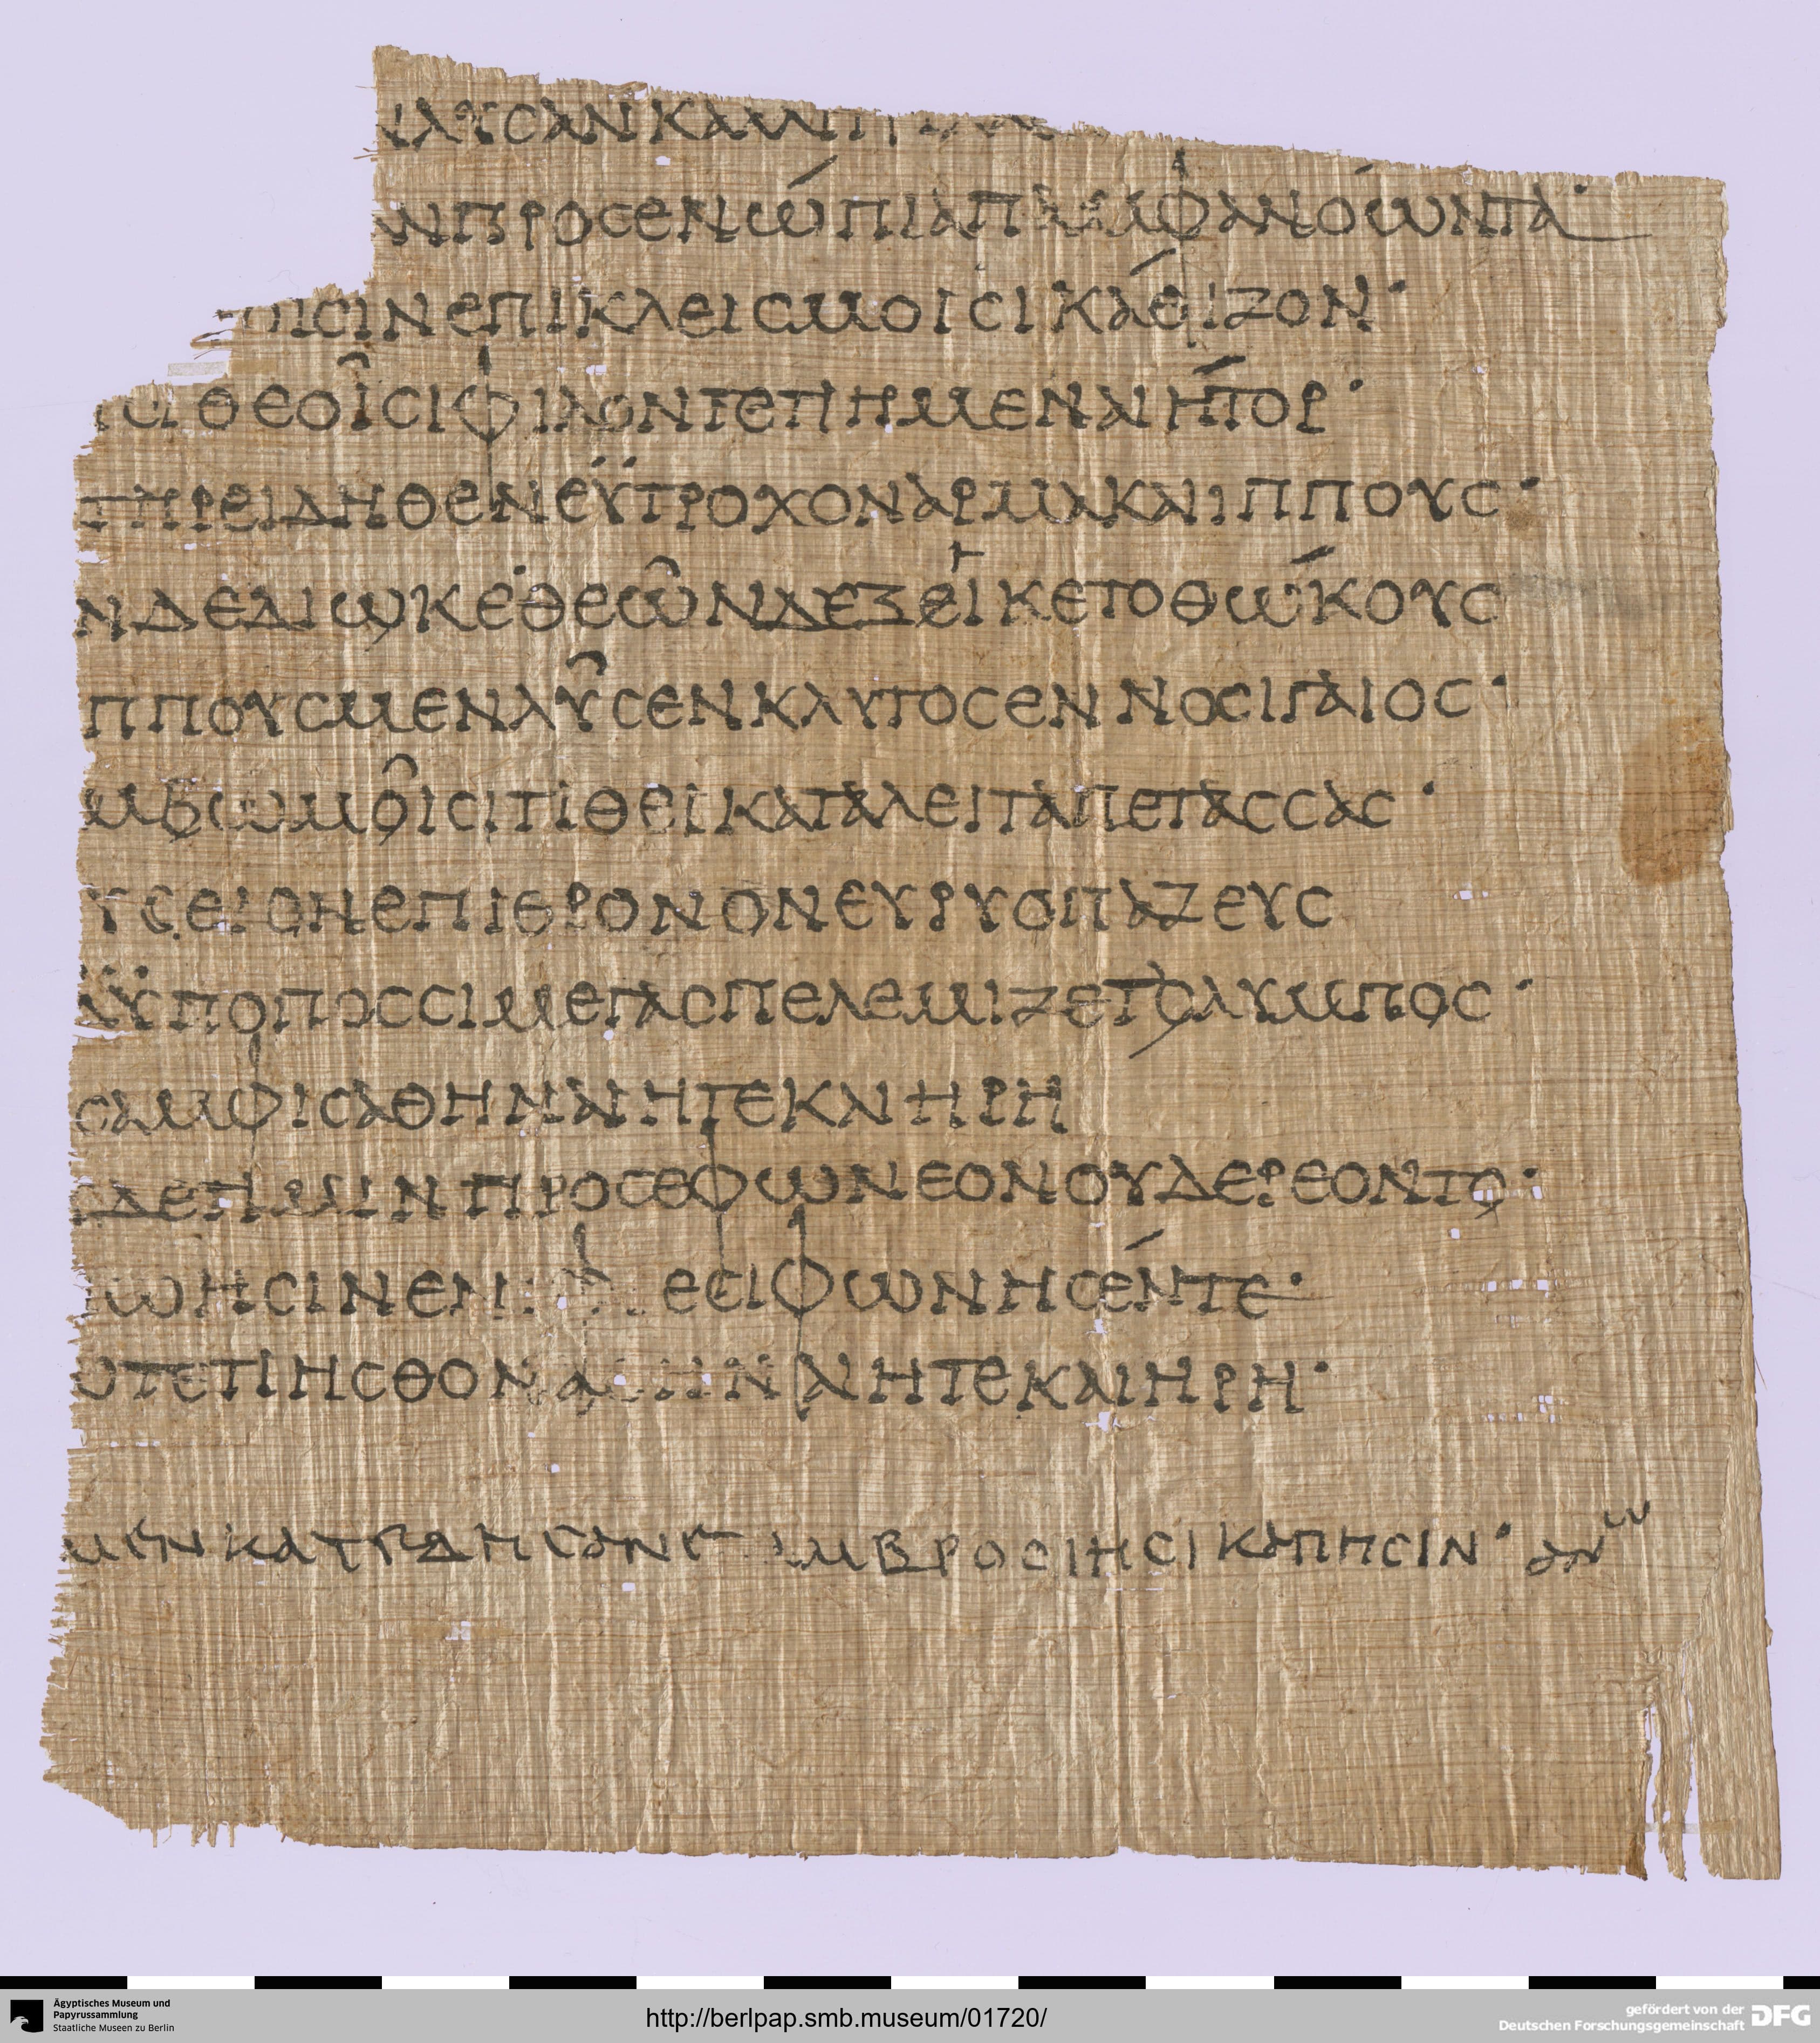 ΛΥΣΑΝ ΚΑΛΛΙΤΡ
Ν ΠΡΟΣ ΕΝΩ´ΠΙΑ ΠΑΜΦΑΝΟ´ΩΝΤΑ·
ΟΙΣΙΝ ΕΠΙ ΚΛΕΙΣΜΟΙΣΙ ΚΑ´ΘΙΖΟΝ·
ΣΙ ΘΕΟΙ͂ΣΙ ΦΙΛΟΝ ΤΕΤΙΗΜΕΝΑΙ Η´ΤΟΡ·
ΤΗΡ ΕΙΔΗΘΕΝ ΕΫΤΡΟΧΟΝ ΑΡΜΑ ΚΑΙ ΙΠΠΟΥΣ·
Ν ΔΕ ΔΙΩΚΕ· ΘΕΩ͂Ν Δ ΕΞΕΙΚΕΤΟ ΘΩ´ΚΟΥΣ
ΠΠΟΥΣ ΜΕΝ ΛΥ͂ΣΕΝ ΚΛΥΤΟΣ ΕΝΝΟΣΙΓΑΙΟΣ·
Μ ΒΩΜΟΙ͂ΣΙ ΤΙΘΕΙ ΚΑΤΑ ΛΕΙΤΑ ΠΕΤΑΣΣΑΣ·
ΥΣΕΙΟΝ ΕΠΙ ΘΡΟΝΟΝ ΕΥΡΥΟΠΑ ΖΕΥΣ
Ϋ̈ΠΟ ΠΟΣΣΙ ΜΕΓΑΣ ΠΕΛΕΜΙΖΕΤ ΟΛΥΜΠΟΣ·
Σ ΑΜΦΙΣ ΑΘΗΝΑΙΗ ΤΕ ΚΑΙ ΗΡΗ
ΔΕ ΤΙ ΜΙΝ ΠΡΟΣΕΦΩΝΕΟΝ ΟΥΔ ΕΡΕΟΝΤΟ·
Ω ΗΣΙΝ ΕΝΙ ΦΡΕΣΙ ΦΩΝΗΣΕ´Ν ΤΕ·
Ω ΤΕΤΙΗΣΘΟΝ ΑΘΗΝΑΙΗ ΤΕ ΚΑΙ ΗΡΗ·
ΜΕΝ ΚΑΤΕΔΗΣΑΝ ΕΠ ΑΜΒΡΟΣΙΗΣΙ ΚΑΠΗΣΙΝ· ΑΝΩ
Ägyptisches Museum und
Papyrussammlung
Staatliche Museen zu Berlin
http://berlpap.smb.museum/01720/
gefördert von der
Deutschen Forschungsgemeinschaft DFG